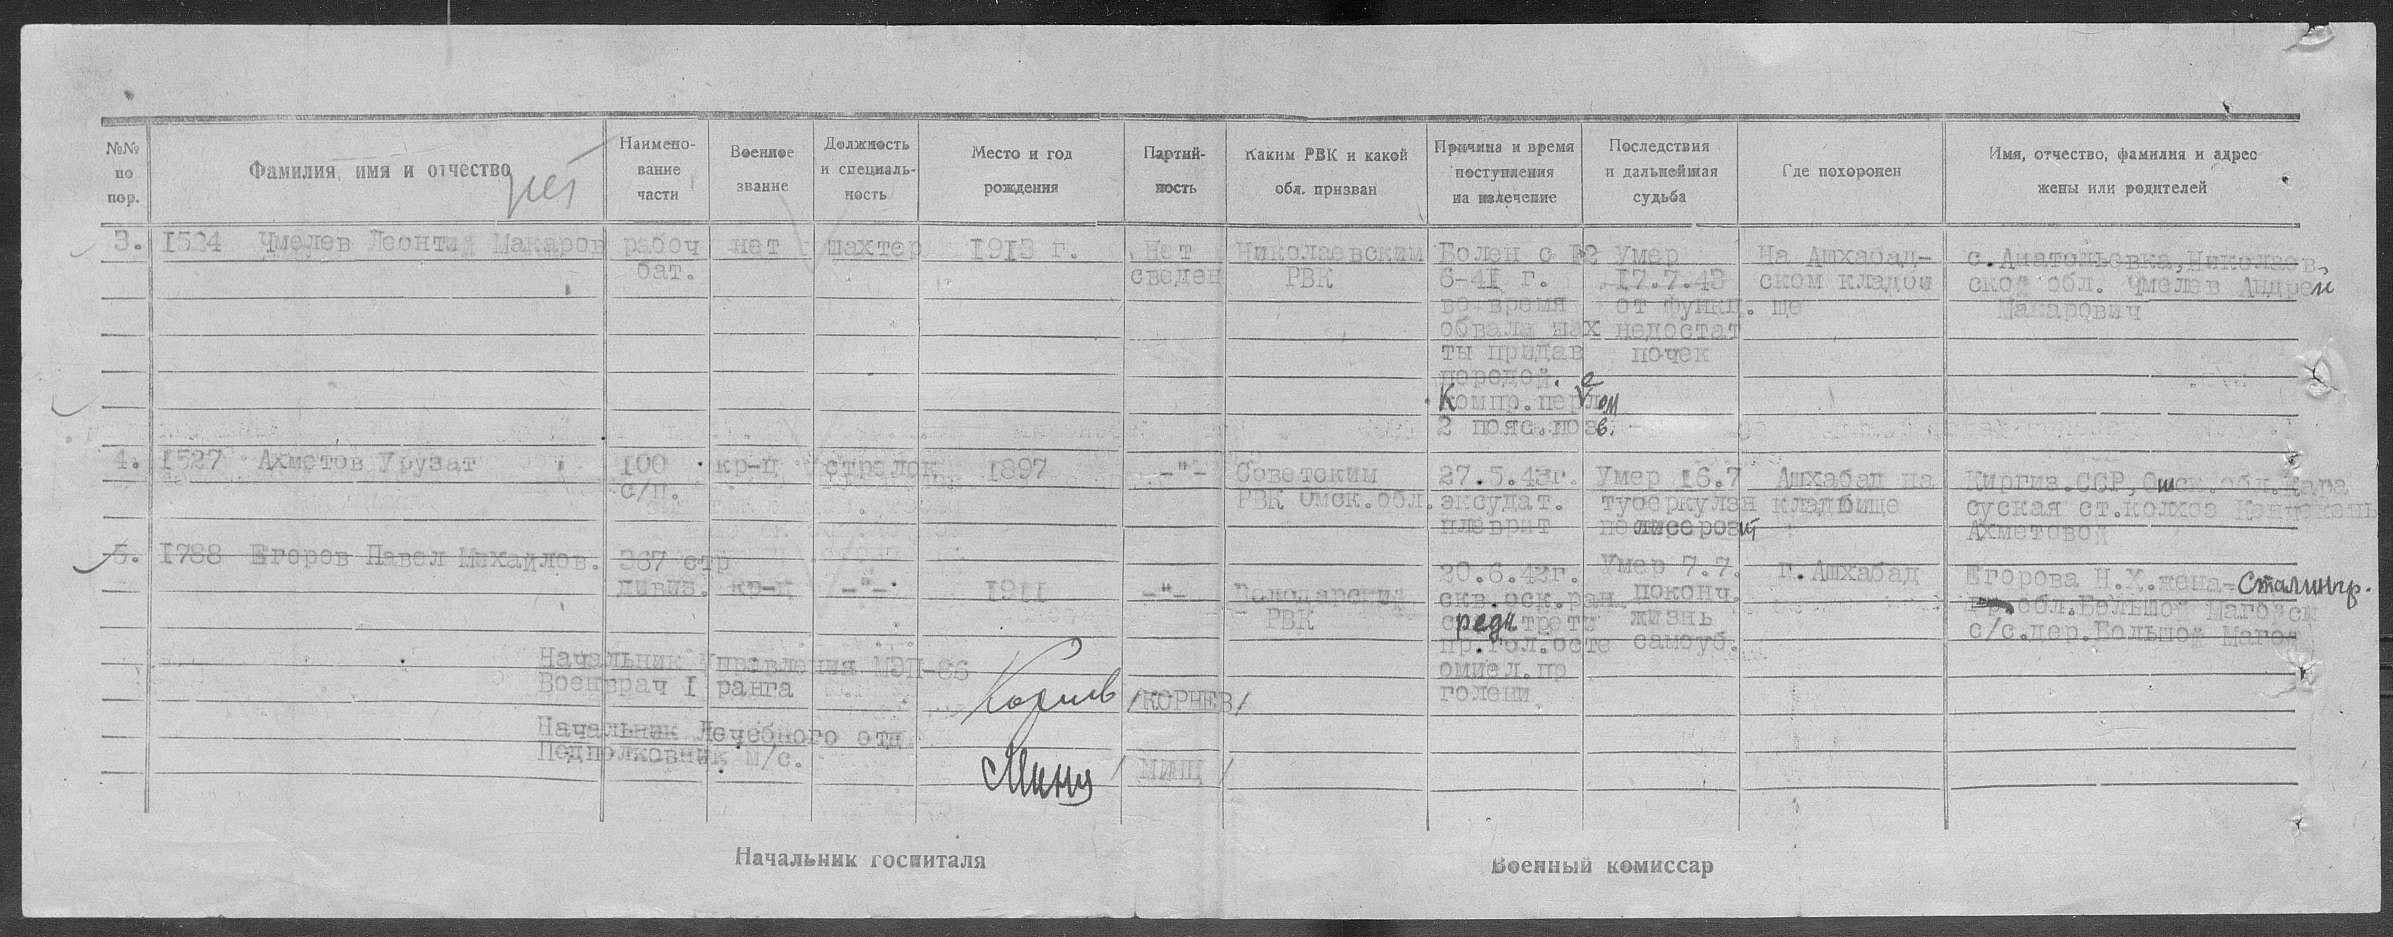 №№ по пор.
Фамилия, имя и отчество
Наимено-вание части
Военное звание
Должность и специаль-ность
Место и год рождения
Партий-ность
Каким РВК и какой обл. призван
Причина и время поступления на излечение
Последствия и дальнейшая судьба
Где похоронен
Имя, отчество, фамилия и адрес жены или родителей
3. 1524 Чмелев Леонтий Макаров рабоч нет шахтер 1913 г. Нет Николаевским Болен с Умер На Ашхабад- с. Анатольевка, Николаев.
бат. сведен РВК 6-41 г. 17.7.43 ском кладби ской обл. Чмелев Андрей
во время от функц. ще Макарович
обвала шах недостат
ты придав почек
породой.
Компр. пер
2 пояс. позв.
4. 1527 Ахметов Урузат 100 кр-ц стрелок 1897 -"- Советским 27.5.43г. Умер 16.7 Ашхабад на Киргиз.ССР, Ошск. обл.
с/п. РВК Омск. обл. эксудат. туберкулзн кладбище суская ст. колхоз
плеврит полисерозит Ахметовой
5. 1788 Егоров Павел Михайлов. 367 стр 20.6.43г. Умер 7.7. г. Ашхабад Егорова Н.Х. жена- Сталингр.
дивиз. кр-ц -"- 1911 -"- Володарский скв. оск. ран. поконч. обл. Большой
РВК средн трети жизнь с/с. дер. Большой
пр. гол. осте самоуб.
омиел. пр
голени
Начальник Управления МЭП-66
Военврач I ранга Корнев /КОРНЕВ/
Начальник Лечебного отд.
Подполковник м/с. Минц / МИНЦ /
Начальник госпиталя
Военный комиссар